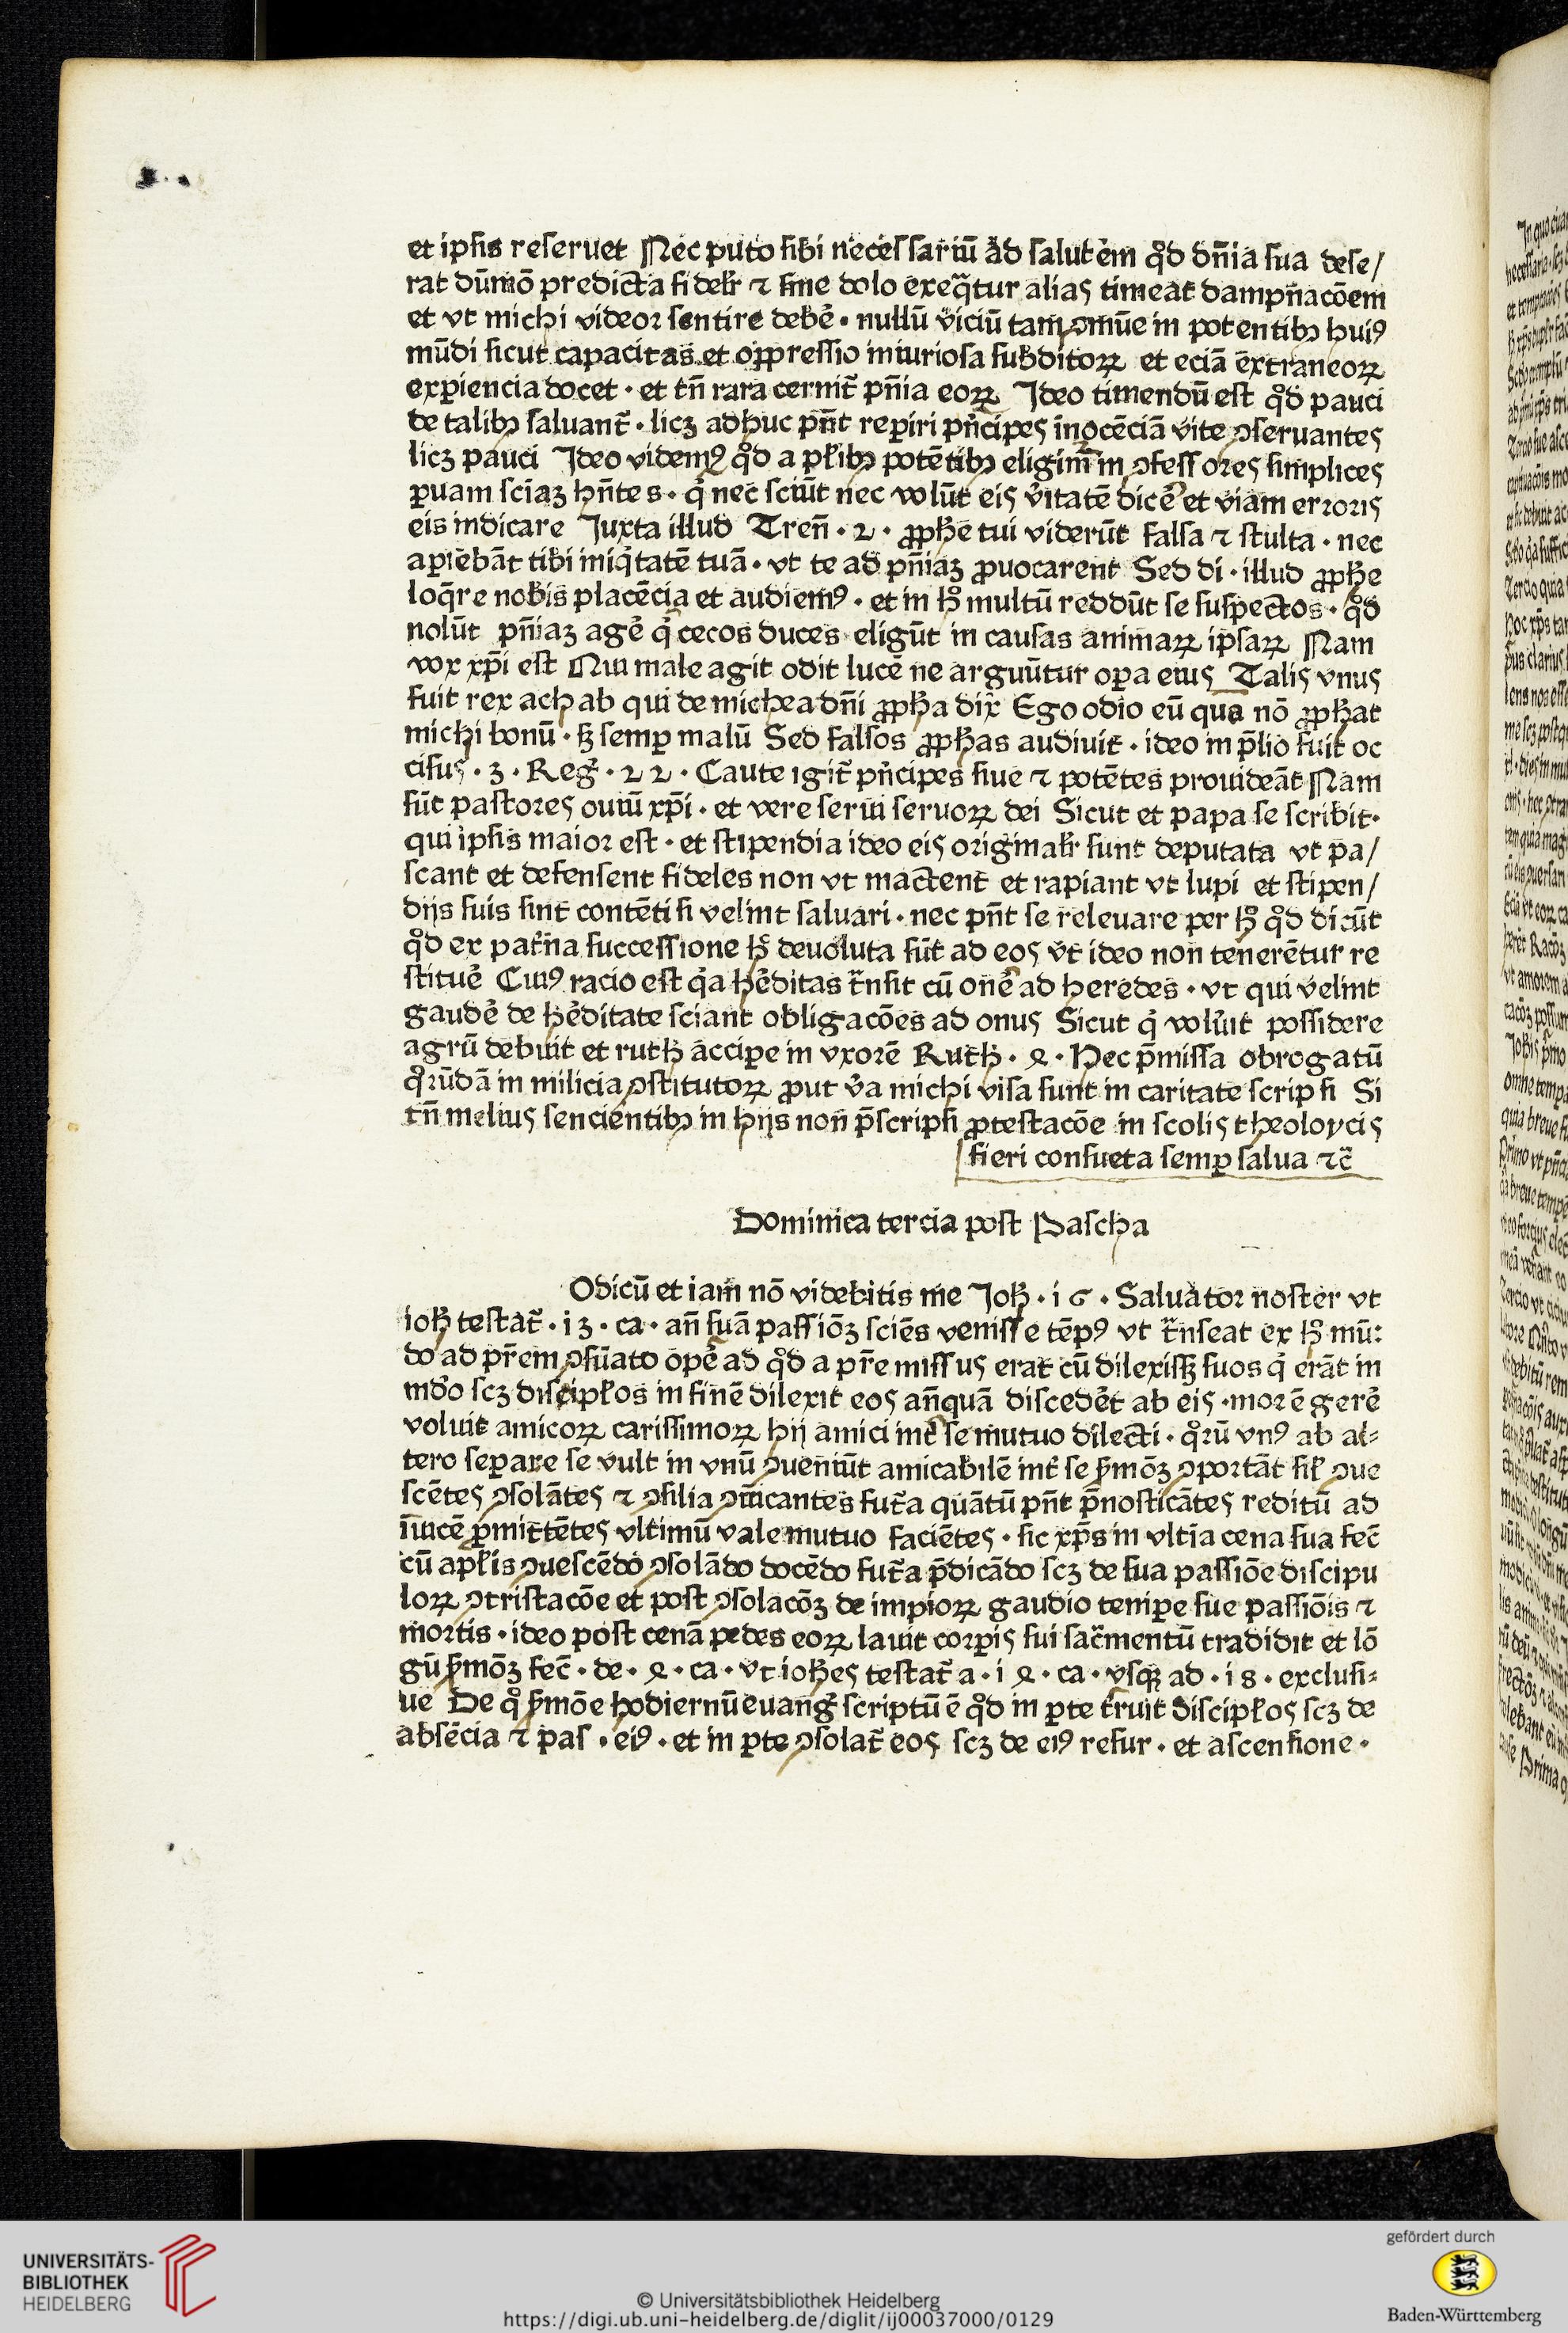 et ipſis reſeruet Nec puto ſibi neceſſariū ad ſalutem qͦd dn̄ia ſua deſe/
rat dūmō predicta fidelr̄ ⁊ ſine dolo exeq̄tur alias timeat dampn̄acōem
et vt michi videor ſentire debe᷒ · nullū viciū tam ꝯmūe in potentibꝫ huiꝰ
mūdi ſicut capacitas et oꝓpreſſio iniurioſa ſubditoꝝ et eciā extraneoꝝ
exꝑiencia docet · et tn̄ rara cernit̄ pn̄ia eoꝝ Ideo timendū eſt qͦd pauci
de talibꝫ ſaluant̄ · licꝫ adhuc pn̄t reꝑiri pn̄cipes īnocēciā vite ꝯſeruantes
licꝫ pauci Ideo videmꝰ qͦd a pl̄ibꝫ potētibꝫ eligim̄ in ꝯfeſſores ſimplices
ꝑuam ſciaꝫ hn̄tes · qͥ nec ſciūt nec volūt eis v̓itatē dice᷒ et viam erroris
eis indicare Juxta illud Tren̄ · 2 · ꝓph̄e tui viderūt falſa ⁊ ſtulta · nec
aꝑiebāt tibi iniqͥtatē tuā · vt te ad pn̄iaꝫ ꝓuocarent Sed di · illud ꝓph̄e
loq̄re nobis placēcia et audiemꝰ · et in hͦ multū reddūt ſe ſuſpectos · qͦd
nolūt pn̄iaꝫ age᷒ qͥ cecos duces eligūt in cauſas animaꝝ ip̄ſaꝝ Nam
vox xp̄i eſt Qui male agit odit lucē ne arguūtur oꝑa eius Talis vnus
fuit rex achab qui de michea dn̄i ꝓph̄a dix̄ Ego odio eū qua nō ꝓph̄at
michi bonū · ſꝫ ſemꝑ malū Sed falſos ꝓph̄as audiuit · ideo in p̄lio fuit oc
ciſus · 3 · Reg̓ · 22 · Caute igit̄ pn̄cipes ſiue ⁊ potētes prouideāt Nam
ſūt paſtores ouiū xp̄i · et vere ſerui ſeruoꝝ dei Sicut et papa ſe ſcribit·
qui ipſis maior eſt · et ſtipendia ideo eis originalr̄ ſunt deputata vt pa/
ſcant et defenſent fideles non vt mactent et rapiant vt lupi et ſtipen/
dijs ſuis ſint contēti ſi velint ſaluari · nec pn̄t ſe releuare per hͦ qͦd dicūt
qͦd ex patr̄na ſucceſſione hͦ deuoluta ſūt ad eos vt ideo non tenerētur re
ſtitue᷒ Cuiꝰ racio eſt qͥa he᷒ditas tr̄nſit cū one᷒ ad heredes · vt qui velint
gaude᷒ de he᷒ditate ſciant obligacōes ad onus Sicut qͥ volu̓it poſſidere
agrū debuit et ruth acciꝑe in vxorē Ruth · 4 · Hec p̄miſſa obrogatū
qͦrūdā in milicia ꝯſtitutoꝝ ꝓut v̓a michi viſa ſunt in caritate ſcripſi Si
tn̄ melius ſencientibꝫ in hijs non p̄ſcripſi ꝓteſtacōe in ſcolis theoloycis
fieri conſueta ſemꝑ ſalua ⁊c̄
Dominica tercia poſt Paſcha
Odicū et iam nō videbitis me Joh̄ · i6 · Saluator noſter vt
ioh̄ teſtat̄ · i3 · ca · an̄ ſuā paſſiōꝫ ſciēs veniſſe tēpꝰ vt tr̄nſeat ex hͦ mū:
do ad pr̄em ꝯſūato ope᷒ ad qͦd a pr̄e miſſus erat cū dilexiſſꝫ ſuos qͥ erāt in
mdͦo ſcꝫ diſcipl̄os in finē dilexit eos an̄quā diſcede᷒t ab eis · morē gere᷒
voluit amicoꝝ cariſſimoꝝ hij amici int̓ ſe mutuo dilecti · qͦrū vnꝰ ab al⸗
tero ſeꝑare ſe vult in vnū ꝯueniūt amicabilē int̓ ſe ẜmōꝫ ꝯportāt ſil̄ ꝯue
ſcētes ꝯſolātes ⁊ ꝯſilia ꝯm̄icantes fut̄a quātū pn̄t p̄noſticātes reditū ad
īuicē ꝓmittētes vltimū vale mutuo faciētes · ſic xp̄s in vltīa cena ſua fec̄
cū apl̄is ꝯueſcēdo ꝯſolādo docēdo fut̄a p̄dicādo ſcꝫ de ſua paſſiōe diſcipu
loꝝ ꝯtriſtacōe et poſt ꝯſolacōꝫ de impioꝝ gaudio temꝑe ſue paſſiōis ⁊
mortis · ideo poſt cenā pedes eoꝝ lauit corꝑis ſui ſac̄mentū tradidit et lō
gū ẜmōꝫ fec̄ · de · 4 · ca · vt ioh̄es teſtat̄ a · i4 · ca · vſqꝫ ad · i8 · excluſi⸗
ue De qͦ ẜmōe hodiernū euang̓ ſcriptū ē qͦd in ꝑte t̓ruit diſcipl̄os ſcꝫ de
abſēcia ⁊ paſ · eiꝰ · et in ꝑte ꝯſolat̄ eos ſcꝫ de eiꝰ reſur · et aſcenſione ·
UNIVERSITÄTS-
BIBLIOTHEK
HEIDELBERG
© Universitätsbibliothek Heidelberg
https://digi.ub.uni-heidelberg.de/diglit/ij00037000/0129
gefördert durch
Baden-Württemberg